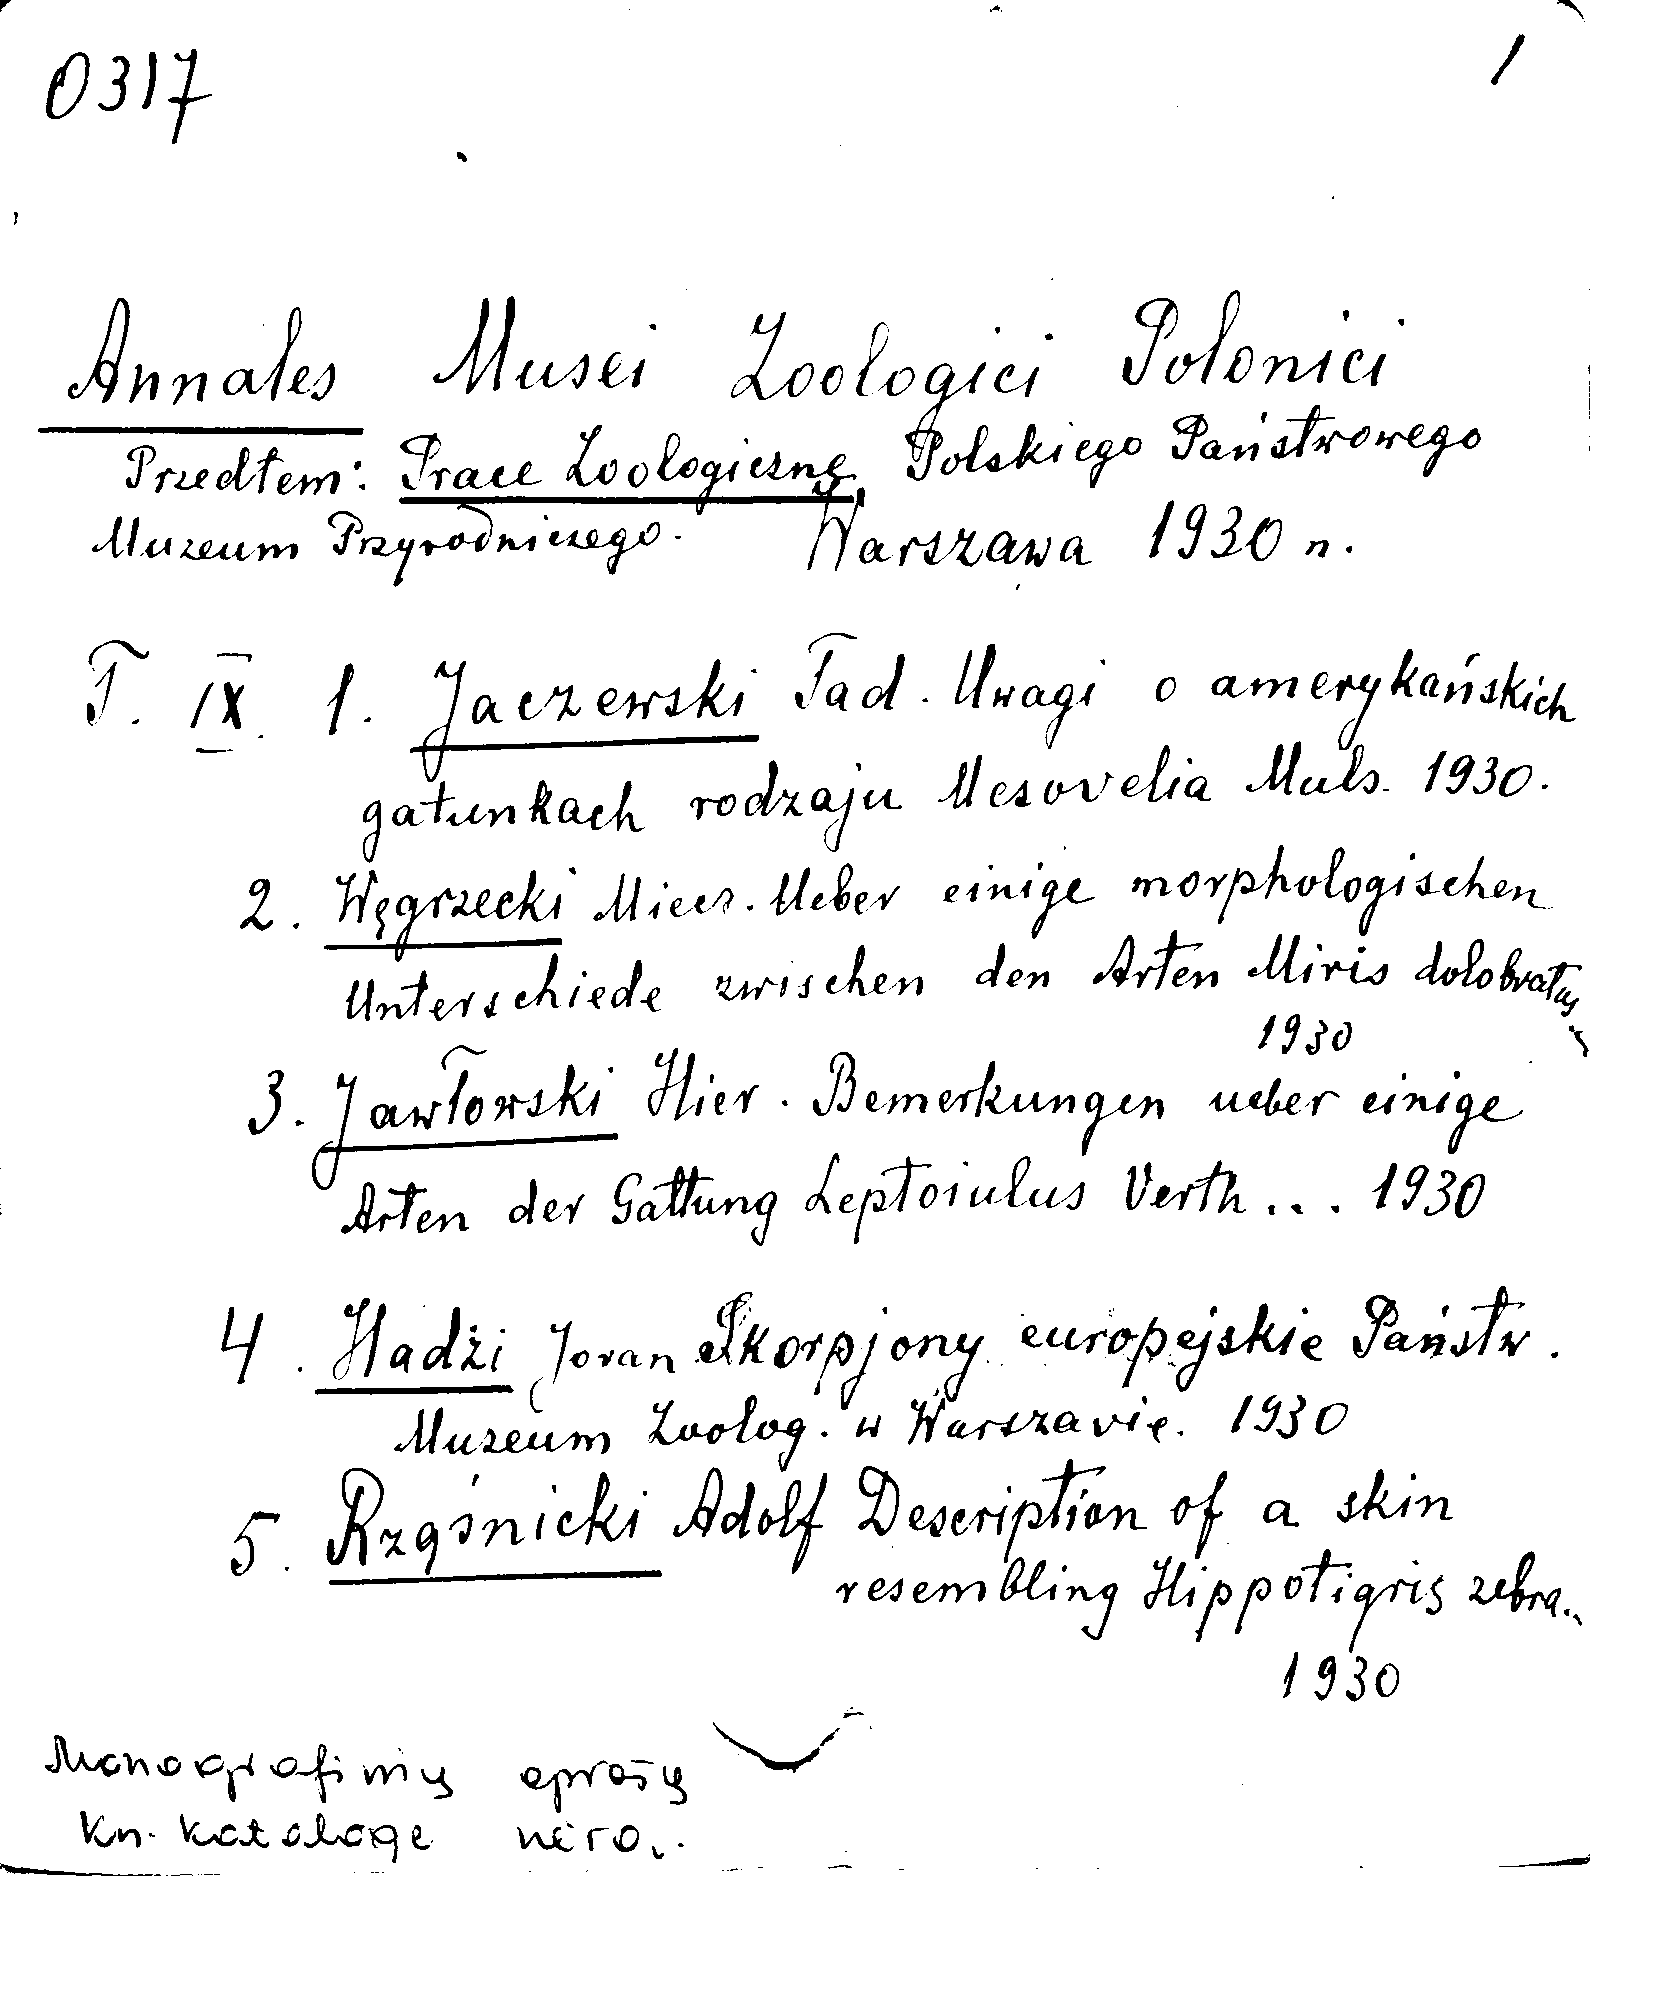 0317 1
Annales Musei Zoologici Polonici
Przedtem: Prace Zoologiczne Polskiego Państwowego
Muzeum Przyrodniczego. Warszawa 1930 n.
T. IX. 1. Jaczewski Tad. Uwagi o amerykańskich
gatunkach rodzaju Mesovelia Muls. 1930.
2. Węgrzecki Miecz. Ueber einige morphologischen
Unterschiede zwischen den Arten Miris dolobratus
1930
3. Jawłowski Hier. Bemerkungen ueber einige
Arten der Gattung Leptoiulus Verth... 1930
4. Hadži Jovan Skorpjony europejskie Państw.
Muzeum Zoolog. w Warszavie. 1930
5. Rząśnicki Adolf Description of a skin
resembling Hippotigris zebra..
1930
Monografinių aprašų
kn. kataloge nėra.